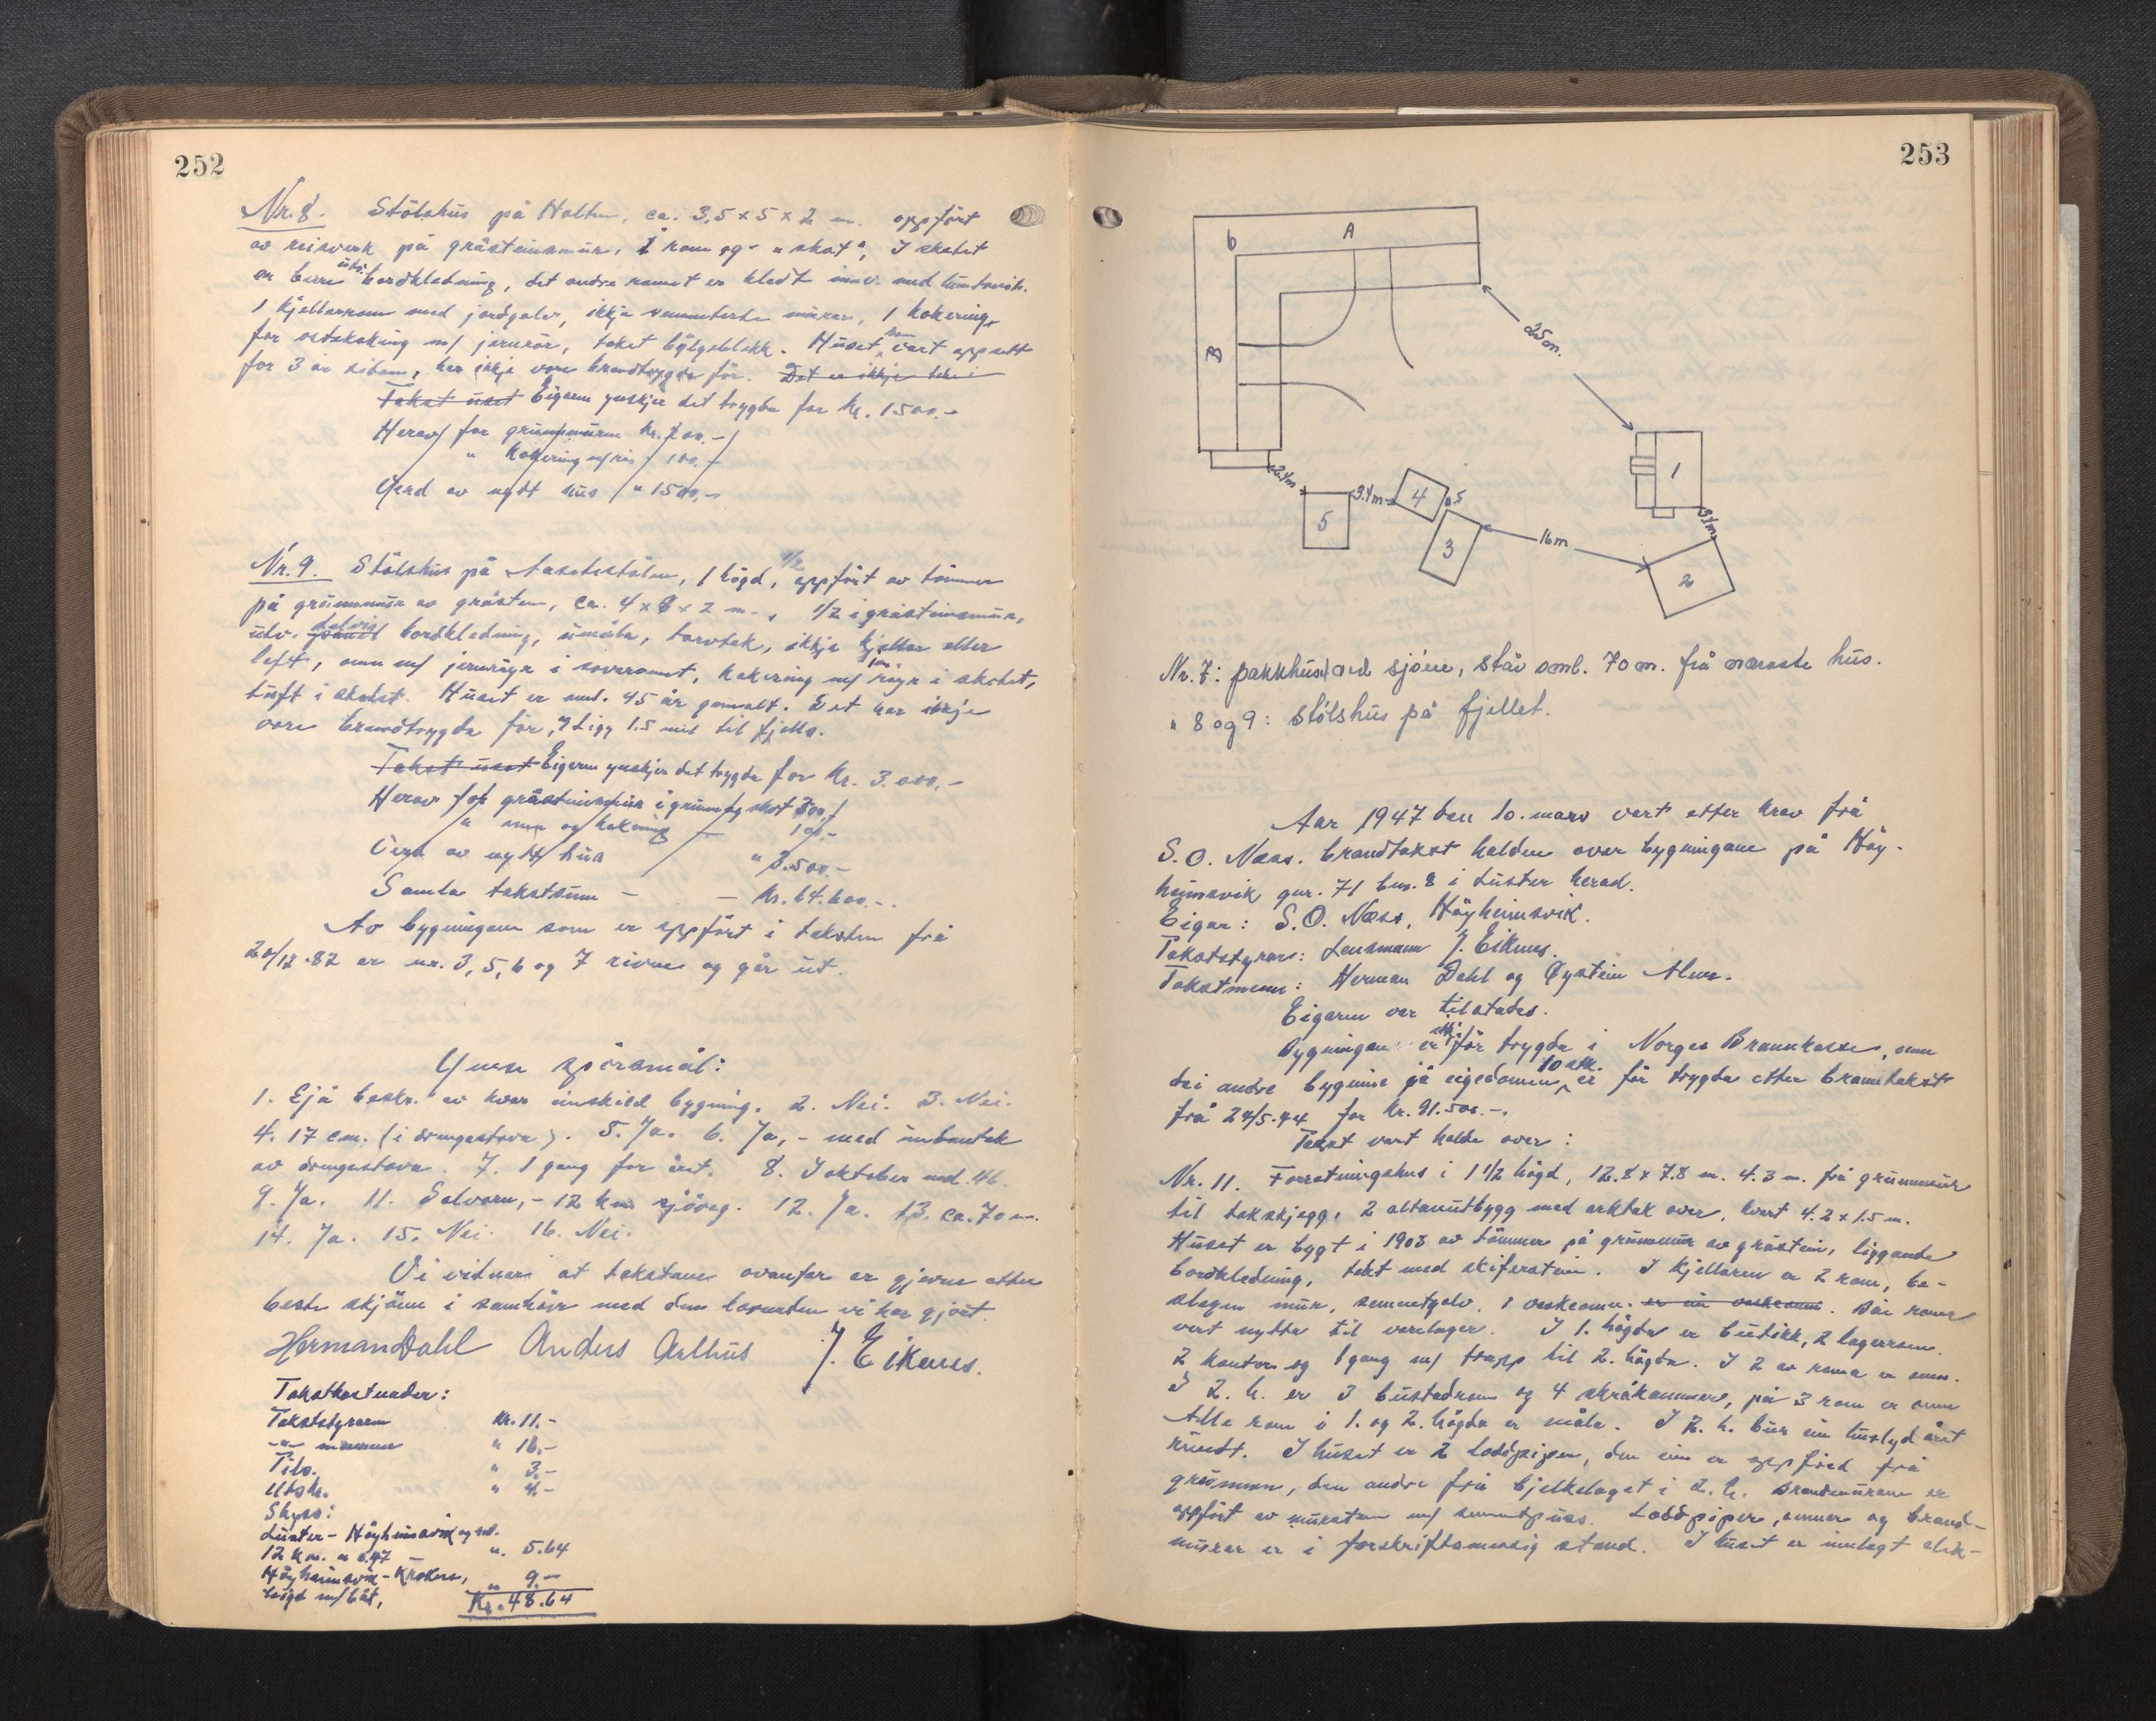 252
Nr. 8. Stölshus på Holten, ca. 3,5 x 5 x 2 m. oppfört
av reisverk på gråsteinsmur, 1 rom og "skot", I skotet
er berre utv. bordkledning, det andre romet er kledt innv. med
1 kjellarrom med jordgolv, ikkje sementerte murar, 1 kokering
for ostekoking m/ jernrör, taket bölgeblekk. Huset som vart oppsett
for 3 år sidan, har ikkje vore brandtrygda för. Det er ikkje
Takst uset Eigaren ynskjer det trygda for kr. 1500.-
Herav for grunnmuren kr. 200.-
" kokering m/rör 100.-
Verd av nytt hus " 1500.-
Nr. 9. Stölshus på Aasetestölen, 1 högd, 1/2 oppfört av tömmer
på grunnmur av gråstein, ca. 4 x 8 x 2 m., 1/2 i gråsteinsmur,
utv. delvis bordkledning, umåla, torvtak, ikkje kjellar eller
loft, omn m/ jernröyr i soveromet, kokering m/ jrn. röyr i skotet,
tuft i skotet. Huset er uml. 45 år gamalt. Det har ikkje
vore brandtrygda för, Ligg 1.5 mil til fjells.
Takst uset Eigaren ynskjer det trygda for kr. 3.000.-
Herav for gråsteinsmur i grunn og skot 300.-
" omn og kokering - 100.-
Verd av nytt hus " 3.500.-
Samla takstsum - - kr. 64.600.-.
Av bygningane som er oppfört i taksten frå
20/12.82 er nr. 3, 5, 6 og 7 rivne og går ut.
Ymse spörsmål:
1. Sjå beskr. av kvar einskild bygning. 2. Nei. 3. Nei.
4. 17 cm. (i drengestova). 5. Ja. 6. Ja, - med unntak
av drengestova. 7. 1 gang for året. 8. I oktober md. 46.
9. Ja. 11. Solvorn, - 12 km sjöveg. 12. Ja. 13. ca. 70 m.
14. Ja. 15. Nei. 16. Nei.
Vi vitnar at takstane ovanfor er gjevne etter
beste skjönn i samhöve med den lovnaden vi har gjort.
Herman Dahl Anders Aalhus J. Eiknes.
Takstkostnader:
Takststyraren kr. 11.-
-"- mennene " 16.-
Tils. " 3.-
Utskr. " 4.-
Skyss:
Luster - Höyheimsvik og ret.
12 km. a 0.47 " 5.64
Höyheimsvik - Kroken,
leigd m/båt, " 9.-
Kr. 48.64
253
6 A
B
25 m.
1
2.4m
5
3.4m
4
0.5
3
16m
3.4m
2
Nr. 7: pakkhuset ved sjöen, står oml. 70 m. frå næraste hus.
" 8 og 9: stölshus på fjellet.
Aar 1947 den 10. mars vart etter krav frå
S. O. Næss. brandtakst halden over bygningane på Höy-
heimsvik gnr. 71 bnr. 8 i Luster herad.
Eigar: S. O. Næss, Höyheimsvik.
Takststyrar: Lensmann J. Eiknes.
Takstmenn: Herman Dahl og Øystein Alme.
Eigaren var tilstades.
Bygningane er ikkje för trygda i Norges Brannkasse, men
dei andre bygnine på eigedomen, 10 stk. er för trygda etter branntakst
frå 24/5.44 for kr. 91.500.-.
Takst vart halde over:
Nr. 11. Forretningshus i 1 1/2 högd, 12.8 x 7.8 m. 4.3 m. frå grunnmur
til takskjegg, 2 altanutbygg med arktak over, kvart 4.2 x 1.5 m.
Huset er bygt i 1903 av tömmer på grunnmur av gråstein, liggande
bordkledning, tekt med skiferstein. I kjellaren er 2 rom, be-
slegen mur, sementgolv, 1 vaskeomn. er ein vaskeomn. Dei roma
vert nytta til varelager. I 1. högda er butikk, 2 lagerrom.
2 kontor og 1 gang m/ trapp til 2. högda. I 2 av roma er omn.
I 2. h. er 3 bustadrom og 4 skråkammers, på 3 rom er omn
Alle rom i 1. og 2. högda er måla. I 2. h. bur ein huslyd året
rundt. I huset er 2 loddpiper, den eine er oppförd frå
grunnen, den andre frå bjelkelaget i 2. h. Brandmurane er
oppfört av murstein m/ sementpuss. Loddpiper, omner og brand-
murar er i forskriftsmessig stand. I huset er innlagt elek-